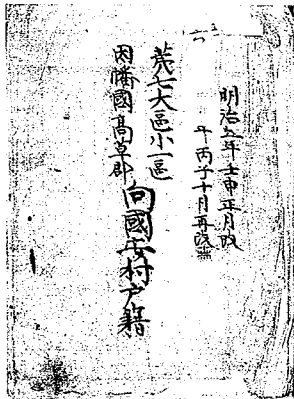 明治五年壬申正月改
年丙子十月再改
第六大區小一區
因幡國高草郡
向國安村戸籍